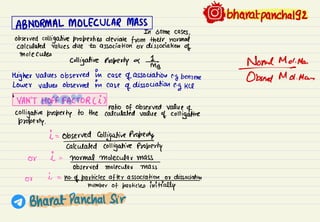 bharatpanchal92
ABNORMAL MOLECULAR MASS
In some cases,
observed colligative properties deviate from their normal
calculated values due to association or dissociation of
molecules
Colligative Property ∝ 1/MB
Normal Mol. Mass
Obsered Mol. Mass
Higher Values observed in case of association eg benzene
Lower values observed in case of dissociation eg KCl
VAN'T HOFF FACTOR (i)
ratio of observed value of
colligative property to the calculated value of colligative
property.
i = observed Colligative Property
Calculated Colligative Property
or i = normal molecular mass
observed molecular mass
or i = no of particles after association or dissociation
number of particles initially
Bharat Panchal Sir